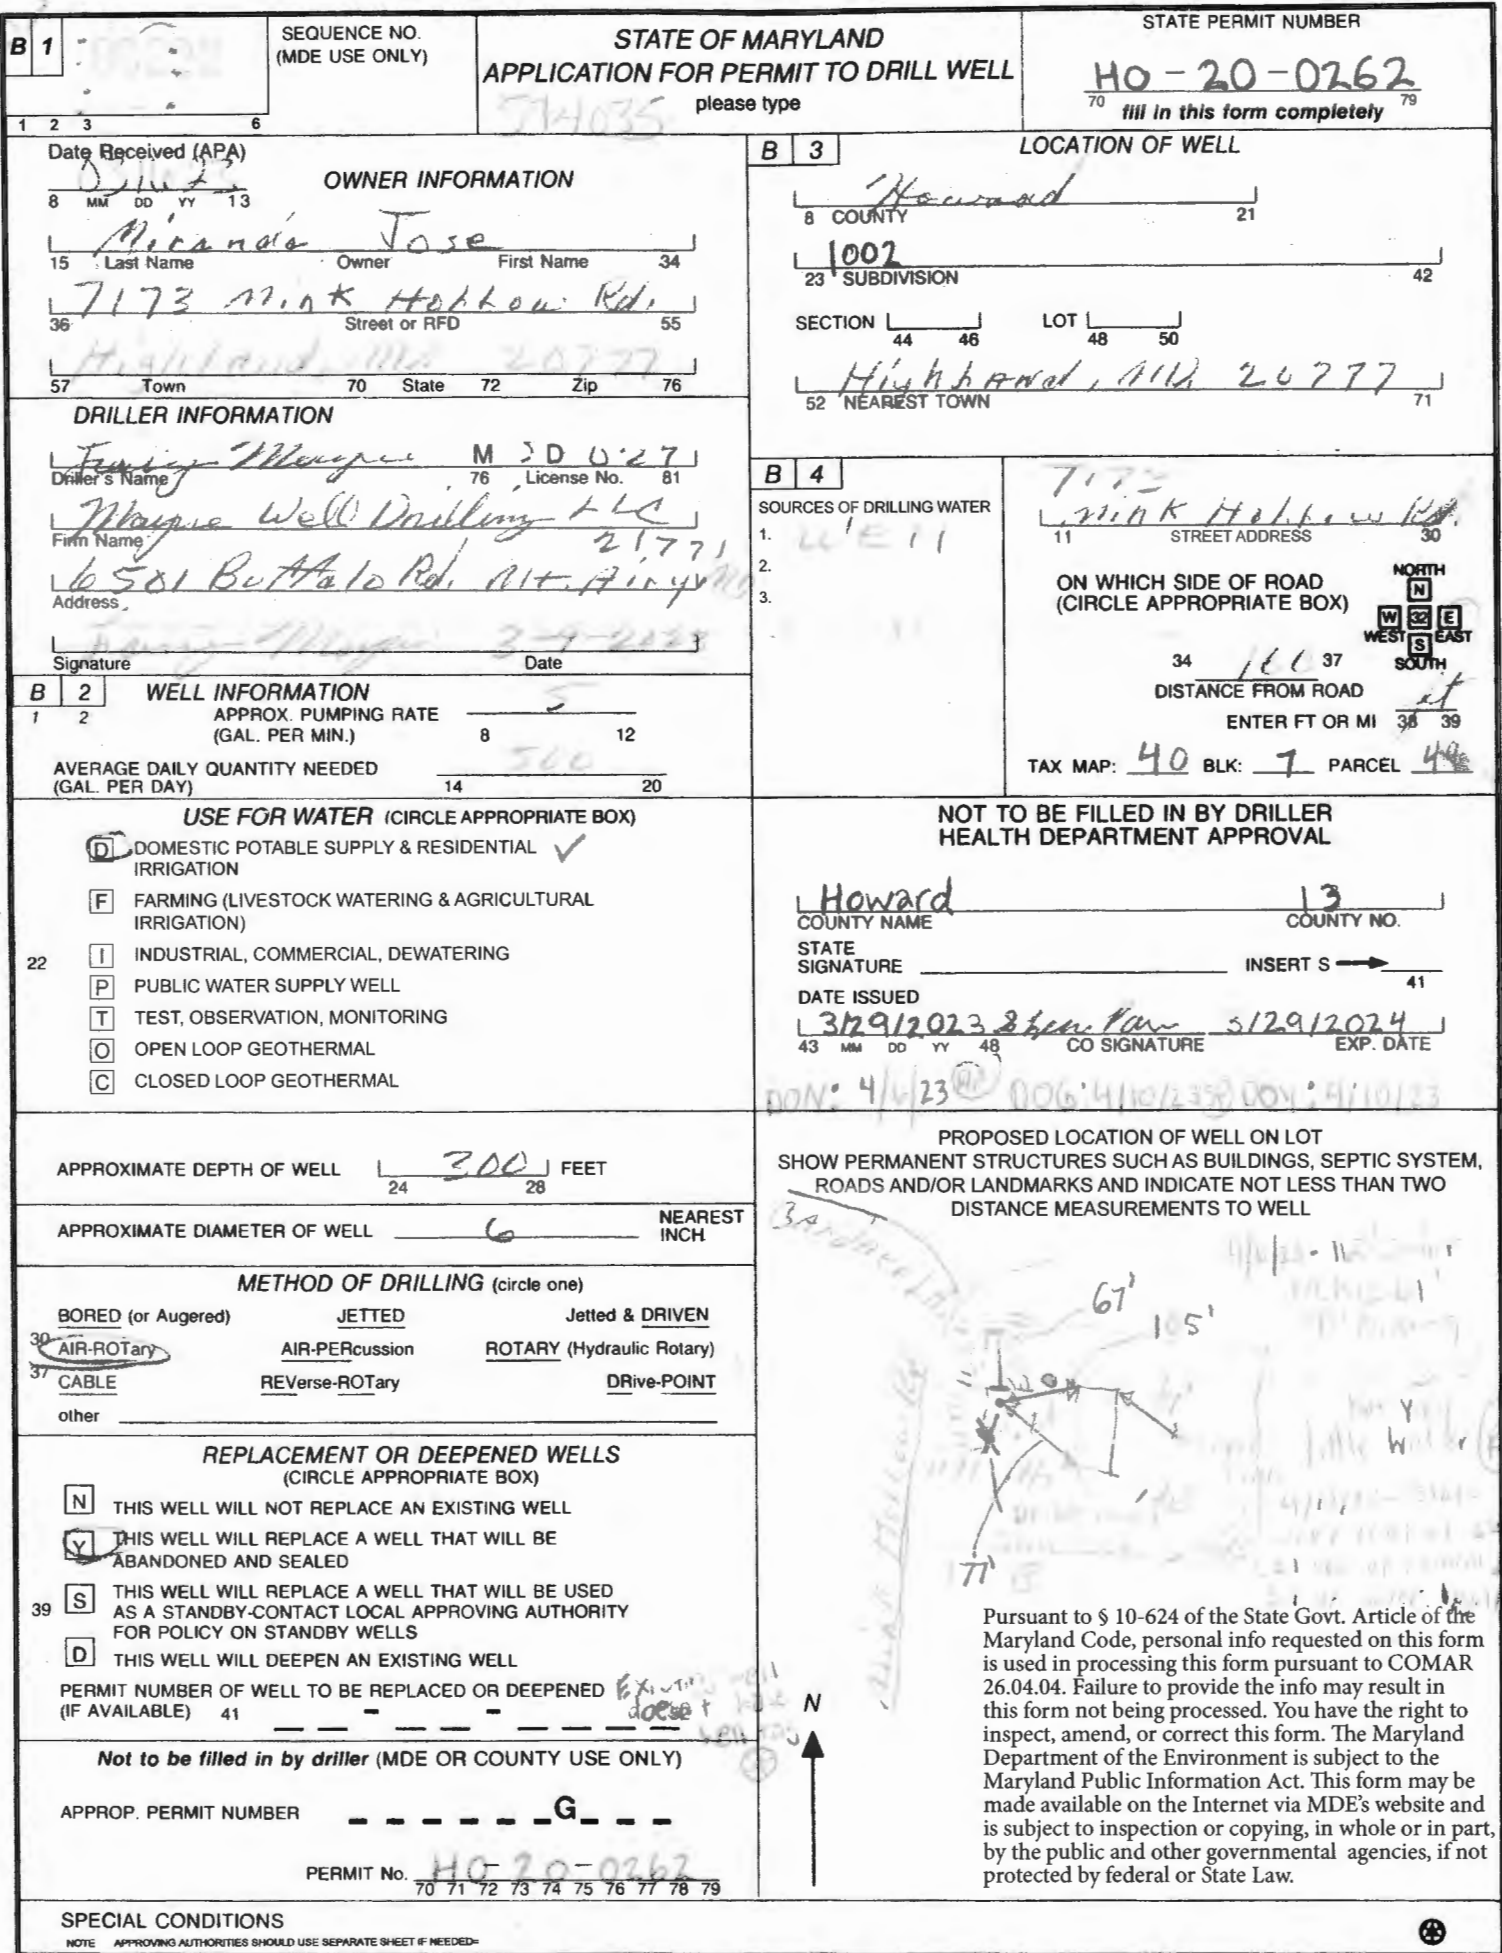 B 1
SEQUENCE NO.
(MDE USE ONLY)
1 2 3 6
STATE OF MARYLAND
APPLICATION FOR PERMIT TO DRILL WELL
please type
574035
STATE PERMIT NUMBER
HO-20-0262
70 fill in this form completely 79
Date Received (APA)
8 MM DD YY 13
OWNER INFORMATION
Miranda Jose
15 Last Name Owner First Name 34
7173 Mink Hollow Rd.
36 Street or RFD 55
Highland, Md 20777
57 Town 70 State 72 Zip 76
DRILLER INFORMATION
Mayne M D 027
Driller's Name 76 License No. 81
Mayne Well Drilling LLC
Firm Name
21771
6501 Buffalo Rd. Mt. Airy
Address
Mayne 3-9-2023
Signature Date
B 2 WELL INFORMATION
1 2
APPROX. PUMPING RATE 5
(GAL. PER MIN.) 8 12
AVERAGE DAILY QUANTITY NEEDED 500
(GAL. PER DAY) 14 20
USE FOR WATER (CIRCLE APPROPRIATE BOX)
D DOMESTIC POTABLE SUPPLY & RESIDENTIAL ✓
IRRIGATION
F FARMING (LIVESTOCK WATERING & AGRICULTURAL
IRRIGATION)
22
I INDUSTRIAL, COMMERCIAL, DEWATERING
P PUBLIC WATER SUPPLY WELL
T TEST, OBSERVATION, MONITORING
O OPEN LOOP GEOTHERMAL
C CLOSED LOOP GEOTHERMAL
APPROXIMATE DEPTH OF WELL 300 FEET
24 28
APPROXIMATE DIAMETER OF WELL 6 NEAREST
INCH
METHOD OF DRILLING (circle one)
BORED (or Augered) JETTED Jetted & DRIVEN
30 AIR-ROTary AIR-PERcussion ROTARY (Hydraulic Rotary)
37 CABLE REVerse-ROTary DRive-POINT
other
REPLACEMENT OR DEEPENED WELLS
(CIRCLE APPROPRIATE BOX)
N THIS WELL WILL NOT REPLACE AN EXISTING WELL
Y THIS WELL WILL REPLACE A WELL THAT WILL BE
ABANDONED AND SEALED
39 S THIS WELL WILL REPLACE A WELL THAT WILL BE USED
AS A STANDBY-CONTACT LOCAL APPROVING AUTHORITY
FOR POLICY ON STANDBY WELLS
D THIS WELL WILL DEEPEN AN EXISTING WELL
PERMIT NUMBER OF WELL TO BE REPLACED OR DEEPENED
(IF AVAILABLE) 41 - -
Existing well
Not to be filled in by driller (MDE OR COUNTY USE ONLY)
APPROP. PERMIT NUMBER G
PERMIT No. HO-20-0262
70 71 72 73 74 75 76 77 78 79
SPECIAL CONDITIONS
NOTE APPROVING AUTHORITIES SHOULD USE SEPARATE SHEET IF NEEDED=
B 3 LOCATION OF WELL
Howard
8 COUNTY 21
1002
23 SUBDIVISION 42
SECTION LOT
44 46 48 50
Highland, MD. 20777
52 NEAREST TOWN 71
B 4
SOURCES OF DRILLING WATER
1. WEll
2.
3.
7173
Mink Hollow Rd.
11 STREET ADDRESS 30
ON WHICH SIDE OF ROAD
(CIRCLE APPROPRIATE BOX)
NORTH
N
W 32 E
WEST EAST
S
SOUTH
34 37
DISTANCE FROM ROAD
ENTER FT OR MI ft
38 39
TAX MAP: 40 BLK: 7 PARCEL
NOT TO BE FILLED IN BY DRILLER
HEALTH DEPARTMENT APPROVAL
Howard 13
COUNTY NAME COUNTY NO.
STATE
SIGNATURE INSERT S
41
DATE ISSUED
3/29/2023 3/29/2024
43 MM DD YY 48 CO SIGNATURE EXP. DATE
DON: 4/6/23 DOG: 4/10/23 4/10/23
PROPOSED LOCATION OF WELL ON LOT
SHOW PERMANENT STRUCTURES SUCH AS BUILDINGS, SEPTIC SYSTEM,
ROADS AND/OR LANDMARKS AND INDICATE NOT LESS THAN TWO
DISTANCE MEASUREMENTS TO WELL
67'
105'
Mink Hollow Rd
little water
N
Pursuant to § 10-624 of the State Govt. Article of the
Maryland Code, personal info requested on this form
is used in processing this form pursuant to COMAR
26.04.04. Failure to provide the info may result in
this form not being processed. You have the right to
inspect, amend, or correct this form. The Maryland
Department of the Environment is subject to the
Maryland Public Information Act. This form may be
made available on the Internet via MDE's website and
is subject to inspection or copying, in whole or in part,
by the public and other governmental agencies, if not
protected by federal or State Law.